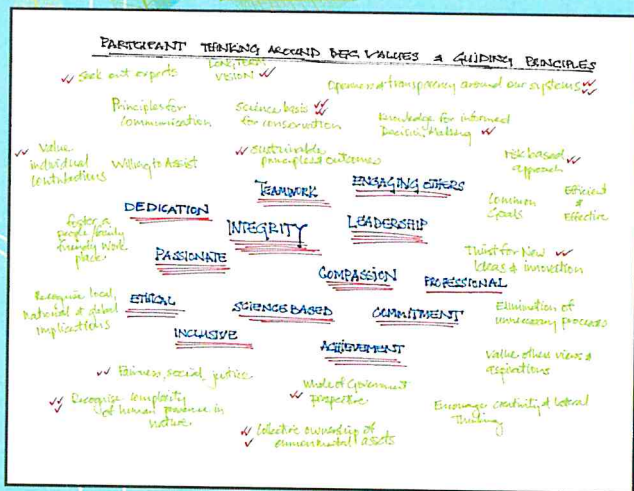 PARTICIPANT THINKING AROUND DEC VALUES & GUIDING PRINCIPLES
Seek out experts
LONG TERM
VISION
Openness & transparency around our systems
Principles for
Communication
Science basis
for conservation
Knowledge for informed
Decision Making
Value
individual
contributions
Willing to Assist
Sustainable
principles & outcomes
risk based
approach
TEAMWORK
ENGAGING OTHERS
Common
Goals
Efficient
&
Effective
DEDICATION
INTEGRITY
LEADERSHIP
foster a
people/family
friendly work
place
PASSIONATE
Thirst for New
Ideas & innovation
COMPASSION
PROFESSIONAL
Recognise local,
national & global
implications
ETHICAL
SCIENCE BASED
COMMITMENT
Elimination of
unnecessary processes
INCLUSIVE
ACHIEVEMENT
Value others views &
aspirations
Fairness, social, justice
Whole of Government
perspective
Recognise complexity
of human presence in
nature
Encourage creativity & lateral
Thinking
Collective ownership of
environmental assets